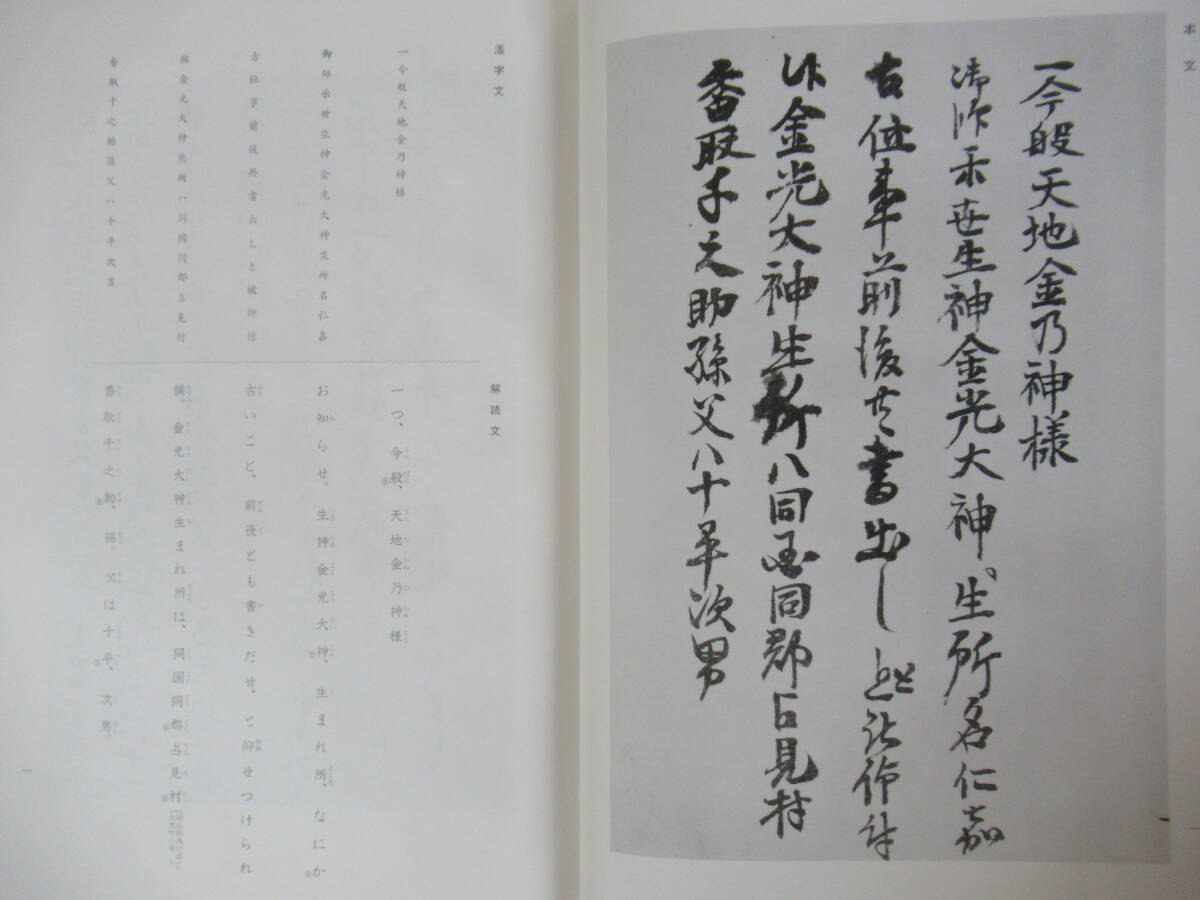 本文
一今般天地金乃神様
御知示世生神金光大神、生所名仁嘉
古位事前後共書出しと被仰付
候金光大神生所八同国同郡占見村
香取千之助孫父八十平次男
一
活字文
一今般天地金乃神様
御知示世生神金光大神生所名仁嘉
古位事前後共書出しと被仰付
候金光大神生所八同国同郡占見村
香取千之助孫父八十平次男
解読文
一つ、今般、天地金乃神様
お知らせ。生神金光大神、生まれ所、なにか
古いこと、前後とも書きだせ、と仰せつけられ
候。金光大神生まれ所は、同国同郡占見村
香取千之助、孫。父は十平、次男。
一